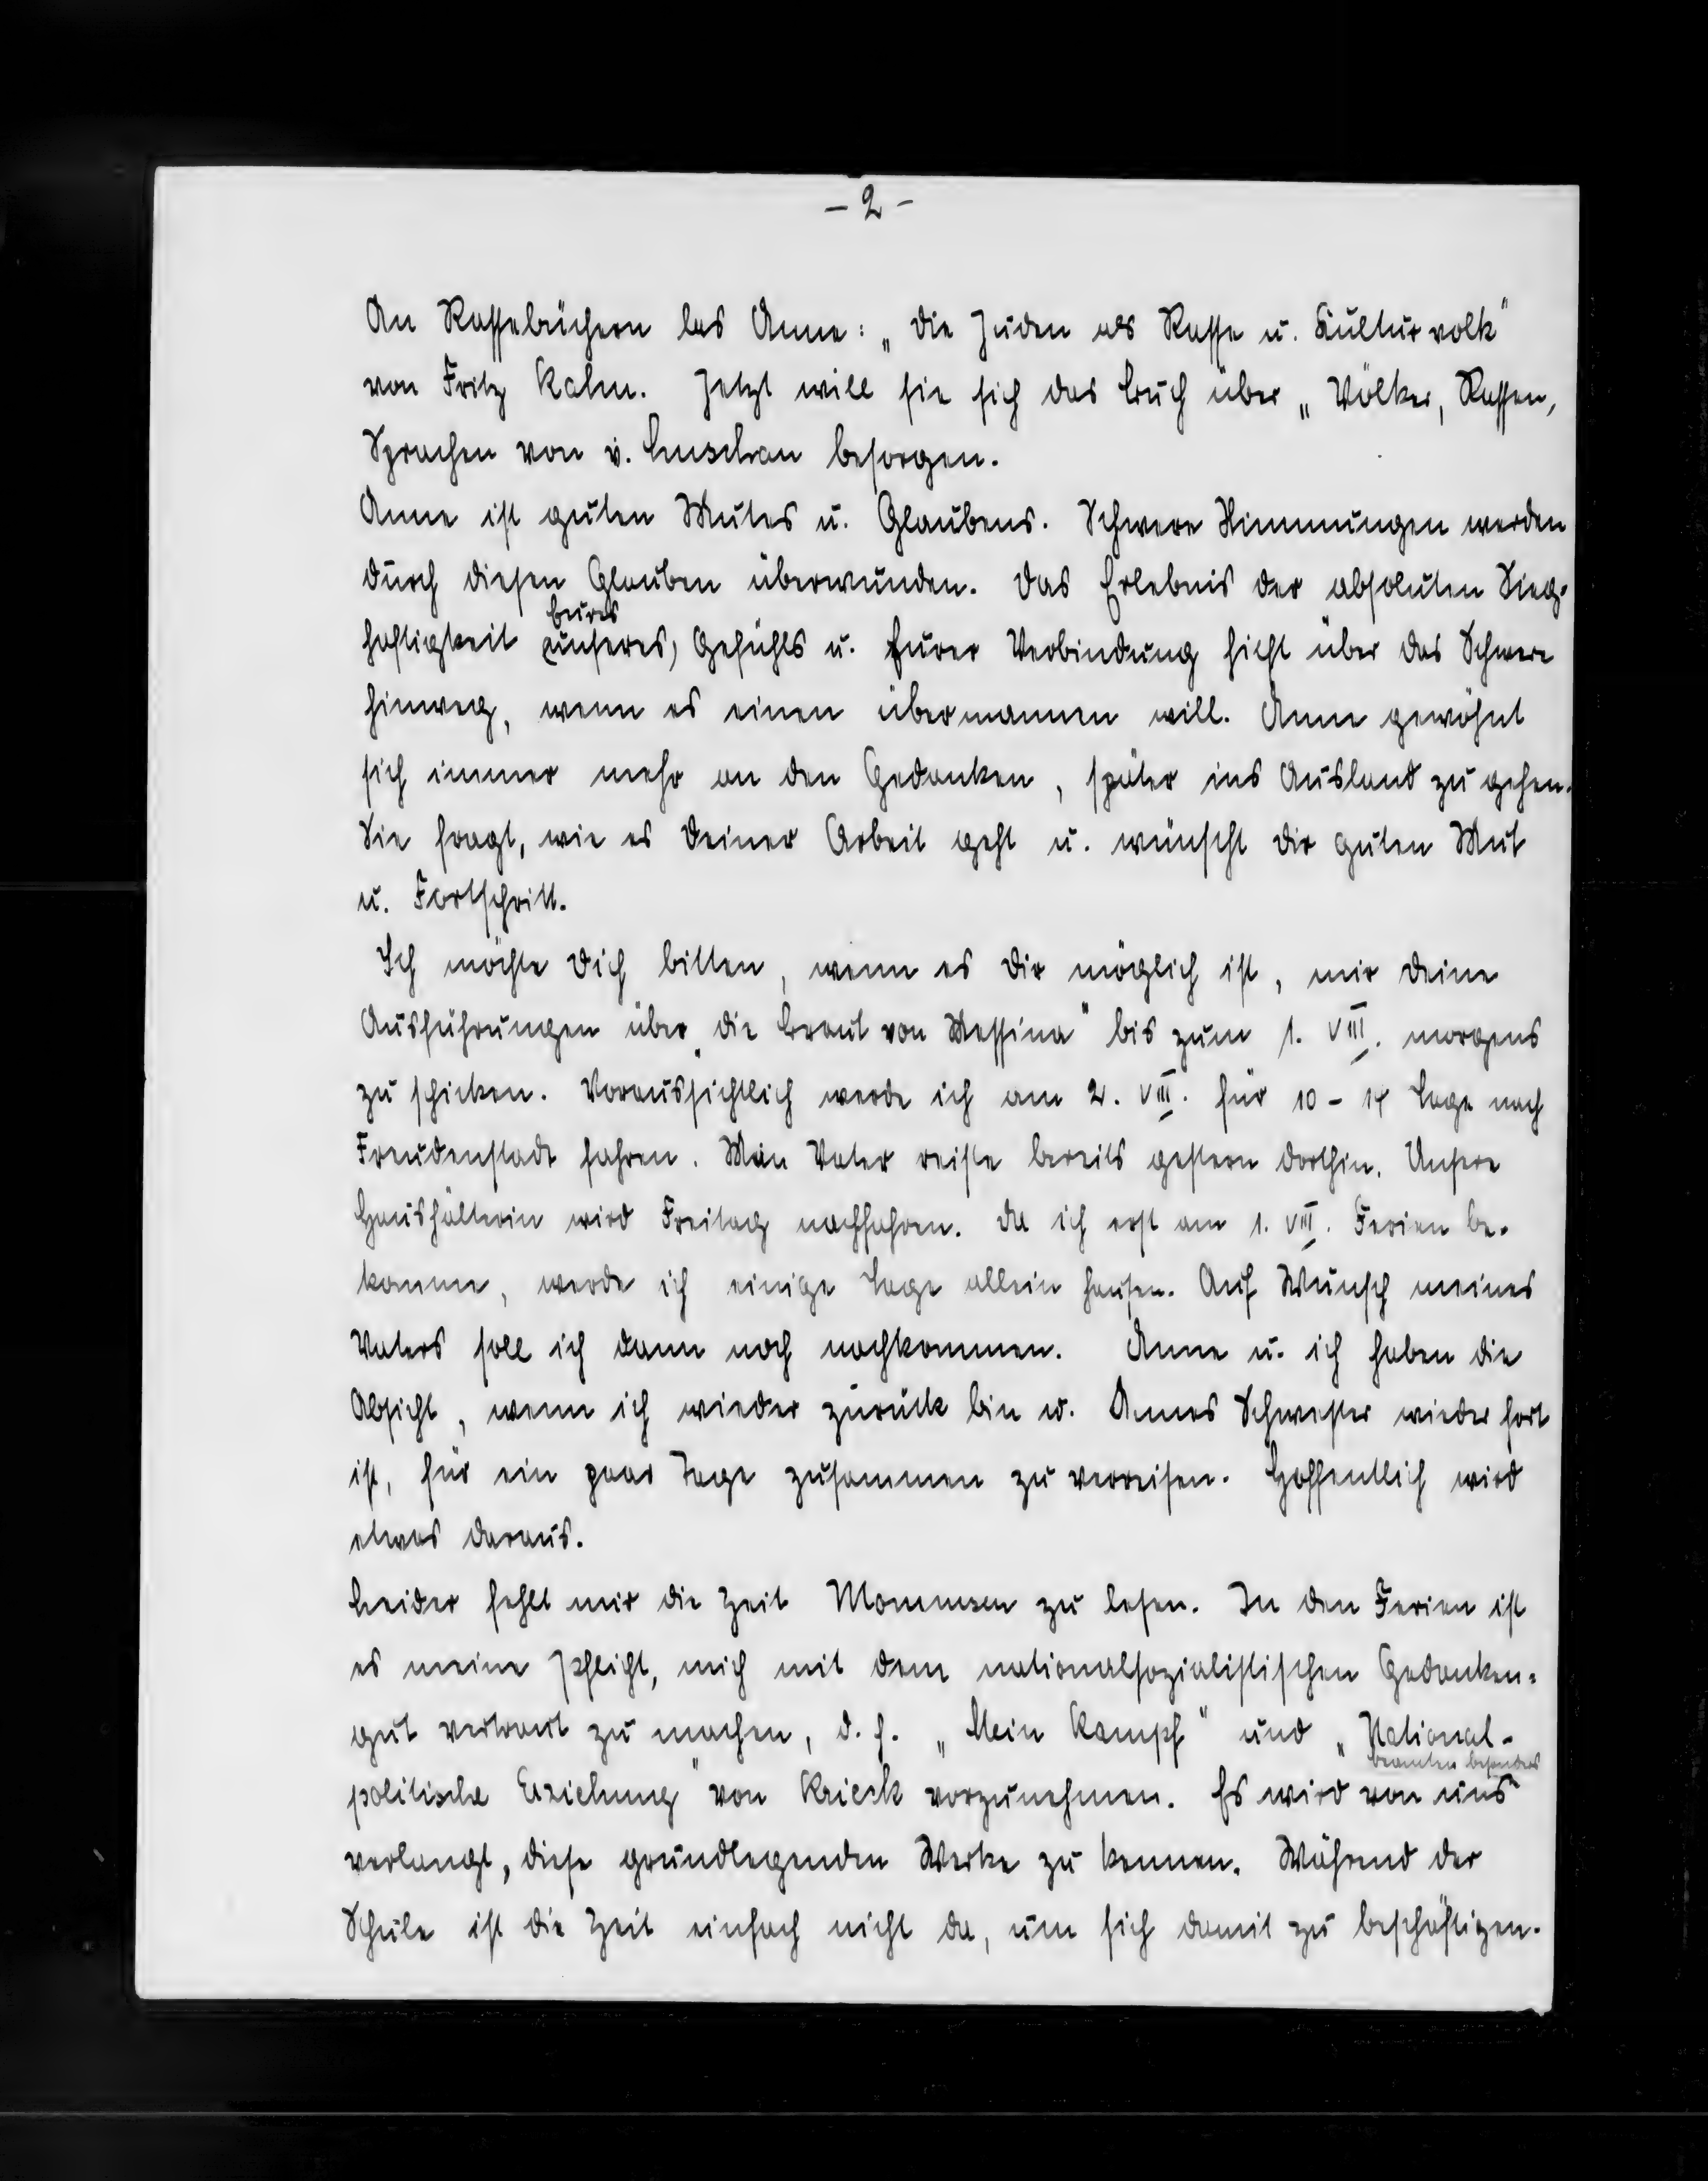 - 2 -
An Rassebüchern las Anne: „Die Juden als Rasse u. Kulturvolk"
von Fritz Kahn. Jetzt will sie sich das Buch über „Völker, Rassen,
Sprachen von v. Luschan besorgen.
Anne ist guten Mutes u. Glaubens. Schwere Stimmungen werden
durch diesen Glauben überwunden. Das Erlebnis der absoluten Sieg-
Eures
haftigkeit (unseres) Gefühls u. Eurer Verbindung hilft über das Schwere
hinweg, wenn es einen übermannen will. Anne gewöhnt
sich immer mehr an den Gedanken, später ins Ausland zu gehen.
Sie fragt, wie es Deiner Arbeit geht u. wünscht Dir guten Mut
u. Fortschritt.
Ich möchte Dich bitten, wenn es Dir möglich ist, mir Deine
Ausführungen über „die Braut von Messina" bis zum 1. VIII. morgens
zu schicken. Voraussichtlich werde ich am 2. VIII. für 10 - 14 Tage nach
Freudenstadt fahren. Mein Vater reiste bereits gestern dorthin. Unsere
Haushälterin wird Freitag nachfahren. Da ich erst am 1. VIII. Ferien be-
komme, werde ich einige Tage allein hausen. Auf Wunsch meines
Vaters soll ich dann noch nachkommen. Anne u. ich haben die
Absicht, wenn ich wieder zurück bin u. Annes Schwester wieder fort
ist, für ein paar Tage zusammen zu verreisen. Hoffentlich wird
etwas daraus.
Leider fehlt mir die Zeit Mommsen zu lesen. In den Ferien ist
es meine Pflicht, mich mit dem nationalsozialistischen Gedanken-
gut vertraut zu machen, d. h. „Mein Kampf" und „National-
beamten besonders
politische Erziehung" von Krieck vorzunehmen. Es wird von uns
verlangt, diese grundlegenden Werke zu kennen. Während der
Schule ist die Zeit einfach nicht da, um sich damit zu beschäftigen.